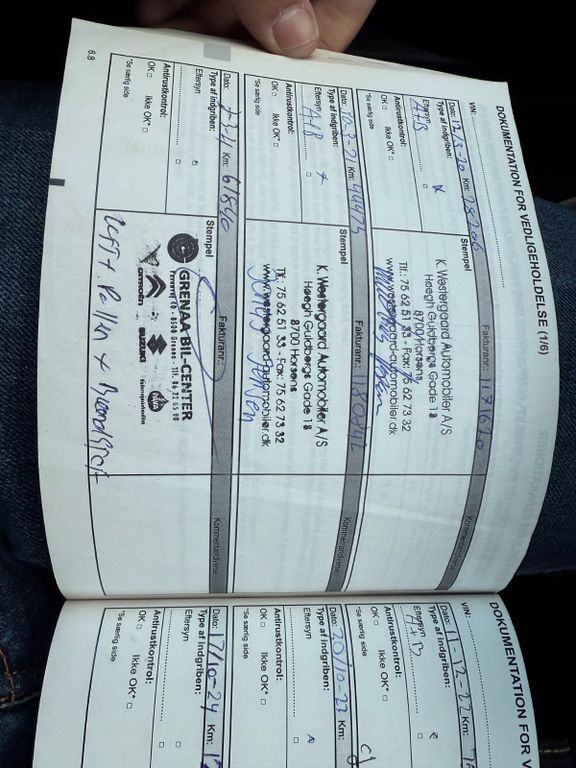 DOKUMENTATION FOR VEDLIGEHOLDELSE (1/6)
VIN:
Dato: 12/3-20 Km:
Fakturanr.: 1171610
Kommentar/diverse
Type af indgriben:
Stempel
Eftersyn
A+B
K. Westergaard Automobiler A/S
Høegh Guldbergs Gade 18
8700 Horsens
Tlf.: 75 62 51 33 - Fax: 75 62 73 32
www.westergaard-automobiler.dk
Antirustkontrol:
OK Ikke OK*
*Se særlig side
Dato: Km: 44475
Fakturanr.: 1180842
Kommentar/diverse
Type af indgriben:
Stempel
Eftersyn
A+B
K. Westergaard Automobiler A/S
Høegh Guldbergs Gade 18
8700 Horsens
Tlf.: 75 62 51 33 - Fax: 75 62 73 32
www.westergaard-automobiler.dk
Antirustkontrol:
OK Ikke OK*
*Se særlig side
Dato: Km: 61840
Fakturanr.:
Kommentar/diverse
Type af indgriben:
Stempel
Eftersyn
GRENAA BIL-CENTER
8500 Grenaa - Tlf. 86 32 65 00
CITROËN SUZUKI
Antirustkontrol:
OK Ikke OK*
*Se særlig side
Luft + Pollen + Brændstof
6.8
DOKUMENTATION FOR V
VIN:
Dato: 11-12-22 Km:
Type af indgriben:
Eftersyn
Antirustkontrol:
OK Ikke OK*
*Se særlig side
Dato: 20/10-23 Km:
Type af indgriben:
Eftersyn
Antirustkontrol:
OK Ikke OK*
*Se særlig side
Dato: 17/10-24 Km:
Type af indgriben:
Eftersyn
Antirustkontrol:
OK Ikke OK*
*Se særlig side